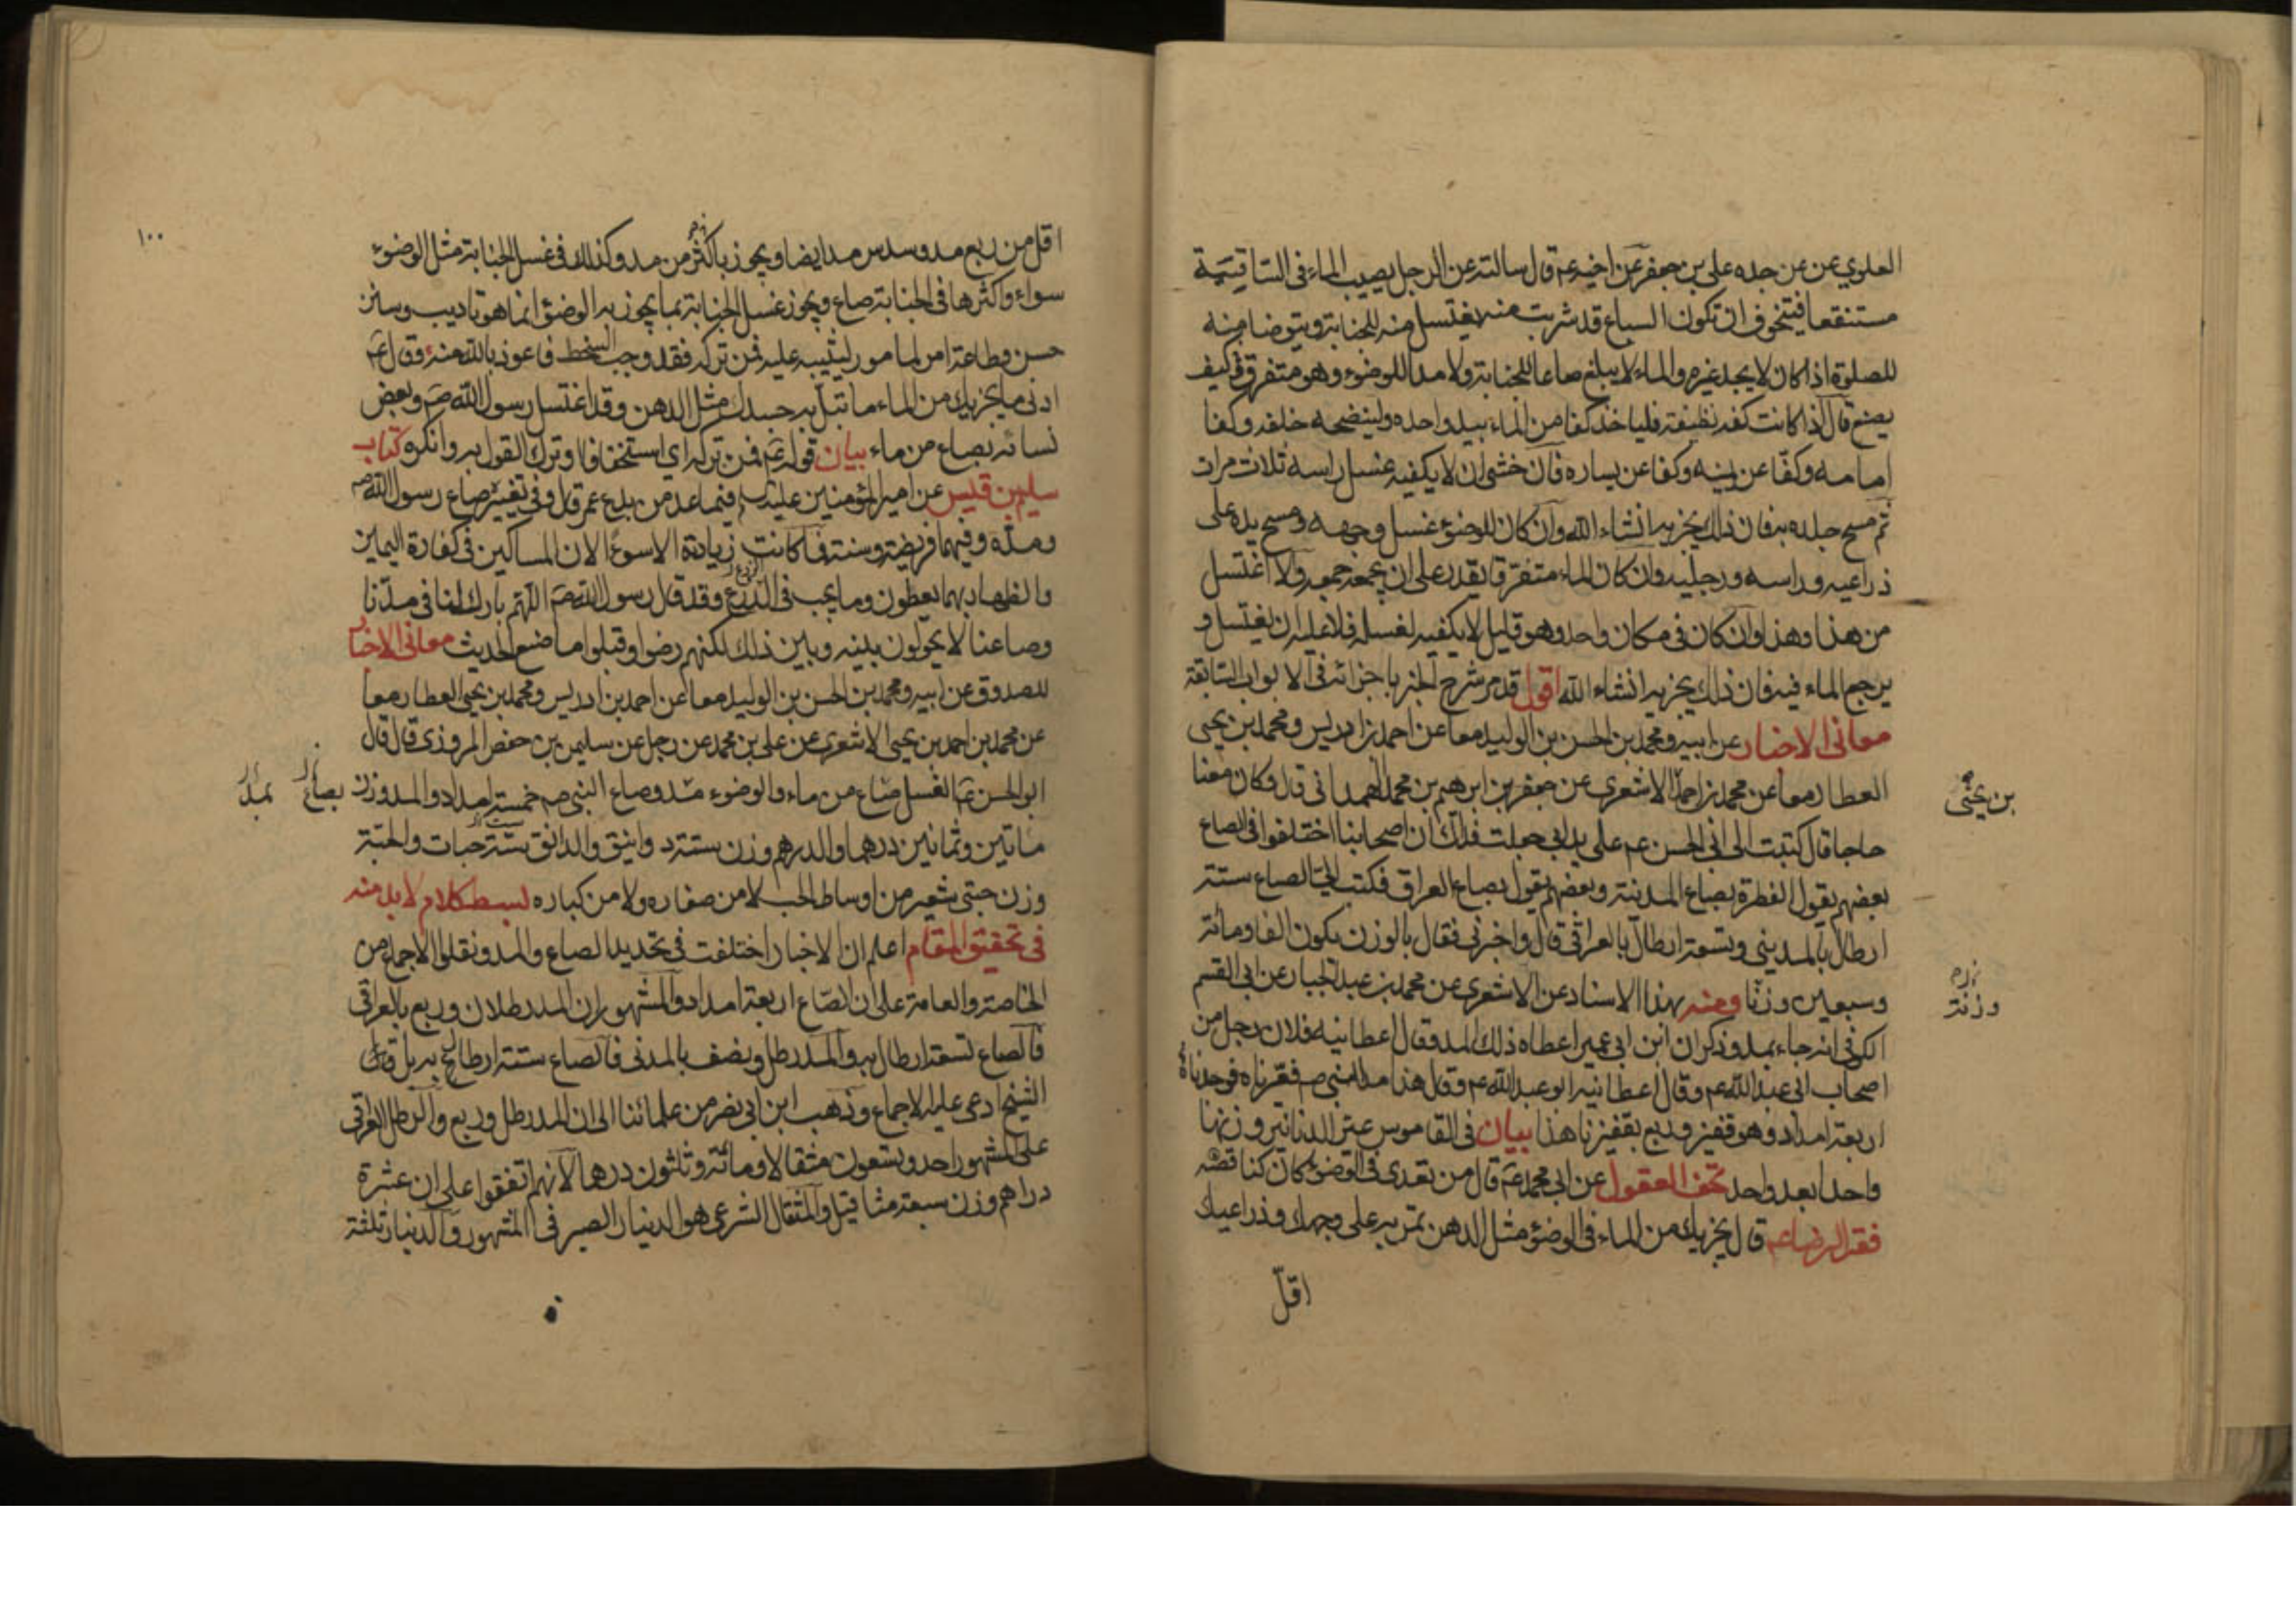 العلوي عن عن جده علي بن جعفر عن اخيه عم قال سالته عن الرجل يصيب الماء في الساقية
مستنقعا فيتخوف ان تكون السباع قد شربت منه يغتسل منه للجنابة ويتوضا منه
للصلوة اذا كان لا يجد غيره والماء لا يبلغ صاعا للجنابة ولا مدا للوضوء وهو متفرق فكيف
يصنع قال اذا كانت كفه نظيفة فلياخذ كفا من الماء بيد واحده ولينضحه خلفه وكفا
امامه وكفا عن يمينه وكفا عن يساره فان خشى ان لا يكفيه غسل راسه ثلاث مرات
ثم مسح جلده به فان ذلك يجزيه انشاء الله وان كان للوضوء غسل وجهه ومسح يده على
ذراعيه وراسه ورجليه وان كان الماء متفرقا يقدر على ان يجمعه جمعه والا اغتسل
من هذا وهذا وان كان في مكان واحد وهو قليل لا يكفيه لغسله فلا عليه ان يغتسل و
يرجع الماء فيه فان ذلك يجزيه انشاء الله اقول قد مر شرح الخبر باجزائه في الابواب السابقة
معاني الاخبار عن ابيه ومحمد بن الحسن بن الوليد معا عن احمد بن ادريس ومحمد بن يحيى
العطار معا عن محمد بن احمد الاشعري عن جعفر بن ابرهيم بن محمد الهمداني قال وكان معنا
بن يحيى
حاجا قال كتبت الى ابي الحسن عم على يد ابي جعلت فداك ان اصحابنا اختلفوا في الصاع
بعضهم يقول الفطرة بصاع المدينة وبعضهم يقول بصاع العراق فكتب الي الصاع ستة
ارطال بالمديني وتسعة ارطال بالعراقي قال واخبرني فقال بالوزن يكون الفا ومائة
وسبعين وزنا ومنه بهذا الاسناد عن الاشعري عن محمد بن عبد الجبار عن ابي القسم
وزنة
الكوفي انه جاء بمد وذكر ان ابن ابي عمير اعطاه ذلك المد وقال اعطانيه فلان رجل من
اصحاب ابي عبد الله عم وقال اعطانيه ابو عبد الله عم وقال هذا مد النبي ص فعيرناه فوجدناه
اربعة امداد وهو قفيز وربع بقفيزنا هذا بيان في القاموس عير الدنانير وزنها
واحدا بعد واحد تحف العقول عن ابي محمد عم قال من تعدى في الوضوء كان كناقضه
فقه الرضا عم قال يجزيك من الماء في الوضوء مثل الدهن تمر به على وجهك وذراعيك
اقل
١٠٠
اقل من ربع مد وسدس مد ايضا ويجوز باكثر من مد وكذلك في غسل الجنابة مثل الوضوء
سواء واكثرها في الجنابة صاع ويجوز غسل الجنابة بما يجوز به الوضوء انما هو تاديب وسنن
حسن وطاعة امر لمامور ليثيبه عليه فمن تركه فقد وجب السخط فاعوذ بالله منه وقال عم
ادنى ما يجزيك من الماء ما تبل به جسدك مثل الدهن وقد اغتسل رسول الله ص وبعض
نسائه بصاع من ماء بيان قوله عم فمن تركه اي استخفافا وترك القول به وانكره كتاب
سليم بن قيس عن امير المؤمنين عليه فيما عد من بدع عمر قال وفي تغييره صاع رسول الله ص
ومده وفيهما فريضة وسنة فما كانت زيادته الا سوءا لان المساكين في كفارة اليمين
والظهار بهما يعطون وما يجب في الزرع وقد قال رسول الله ص اللهم بارك لنا في مدنا
وصاعنا لا يحولون بينه وبين ذلك لكنهم رضوا وقبلوا ما صنع الحديث معاني الاخبار
للصدوق عن ابيه ومحمد بن الحسن بن الوليد معا عن احمد بن ادريس ومحمد بن يحيى العطار معا
عن محمد بن احمد بن يحيى الاشعري عن علي بن محمد عن رجل عن سليمن بن حفص المروزي قال قال
ابو الحسن عم الغسل صاع من ماء والوضوء مد وصاع النبي ص خمسة امداد والمد وزن
بصاع بمد
ماتين وثمانين درهما والدرهم وزن ستة دوانيق والدانق ستة حبات والحبة
وزن حبتي شعير من اوساط الحب لا من صغاره ولا من كباره لبسط كلام لابد منه
في تحقيق المقام اعلم ان الاخبار اختلفت في تحديد الصاع والمد ونقلوا الاجماع من
الخاصة والعامة على ان الصاع اربعة امداد والمشهور ان المد رطلان وربع بالعراقي
فالصاع تسعة ارطال به والمد رطل ونصف بالمدني فالصاع ستة ارطال به بل
الشيخ ادعى عليه الاجماع وذهب ابن ابي نصر من علمائنا الى ان المد رطل وربع والرطل العراقي
على المشهور احد وتسعون مثقالا ومائة وثلثون درهما لانهم اتفقوا على ان عشرة
دراهم وزن سبعة مثاقيل والمثقال الشرعي هو الدينار الصيرفي المشهور والدينار ثلثة